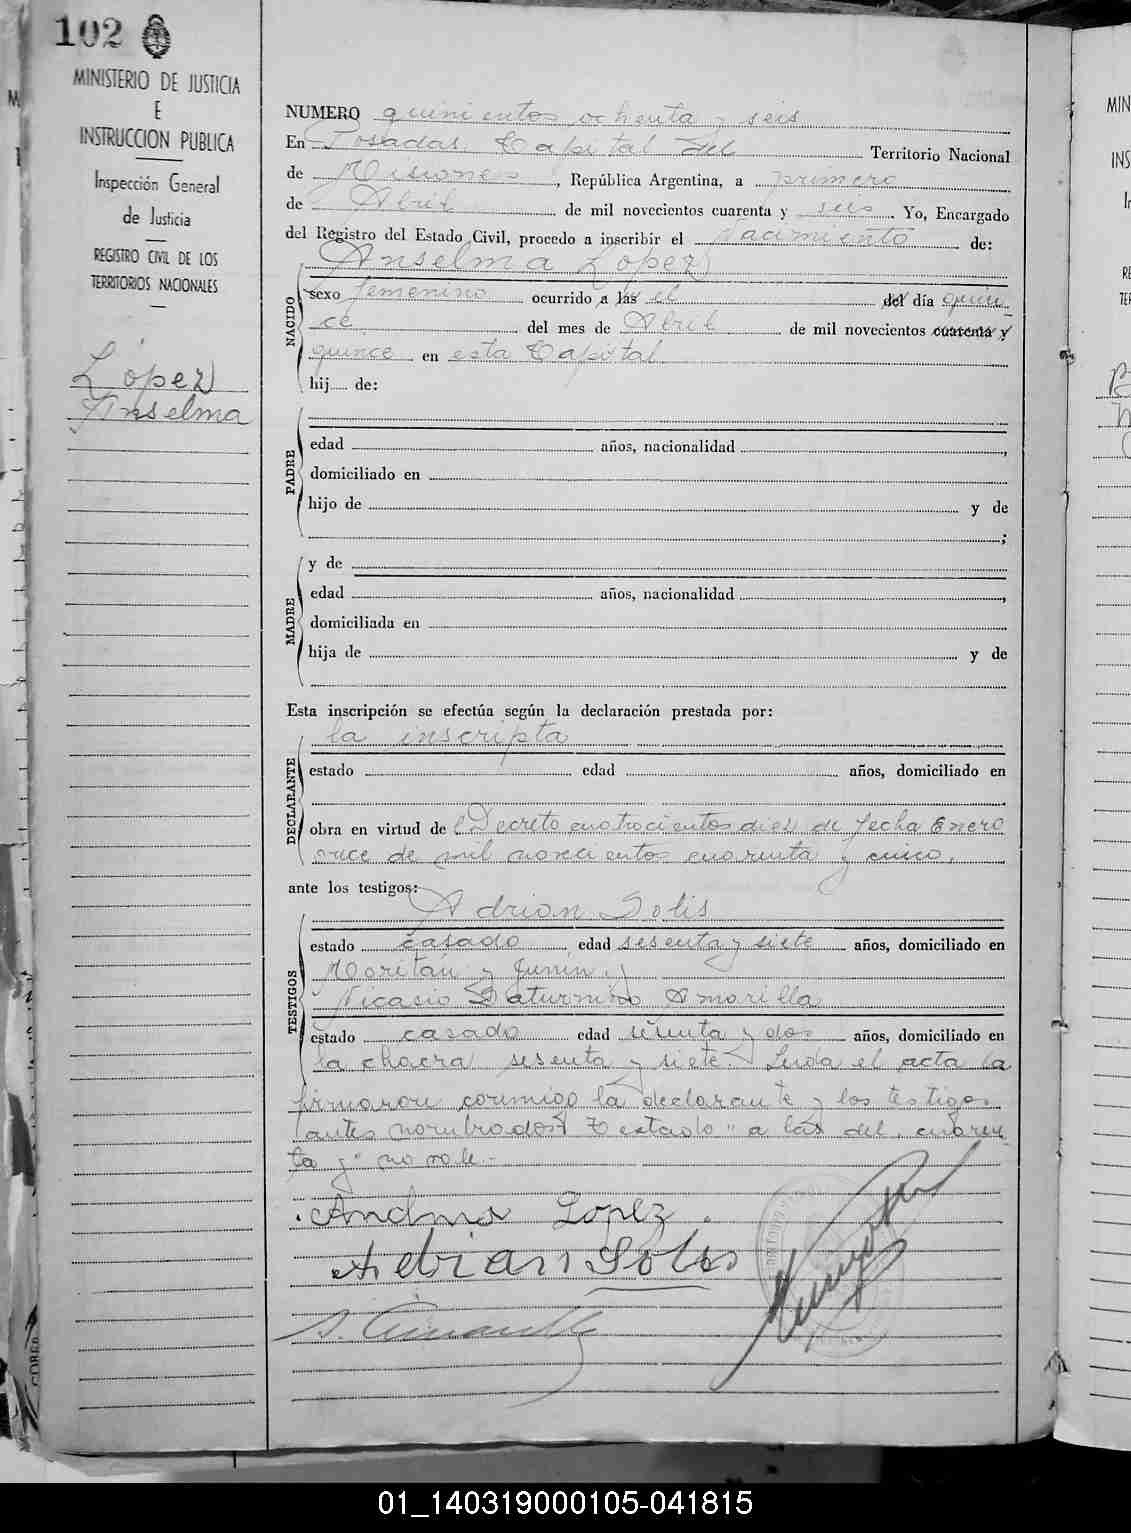 102
MINISTERIO DE JUSTICIA
E
INSTRUCCION PUBLICA
Inspección General
de Justicia
REGISTRO CIVIL DE LOS
TERRITORIOS NACIONALES
López
Anselma
NUMERO quinientos ochenta y seis
En Posadas Capital del Territorio Nacional
de Misiones, República Argentina, a primero
de Abril de mil novecientos cuarenta y seis. Yo, Encargado
del Registro del Estado Civil, procedo a inscribir el Nacimiento de:
Anselma Lopez
NACIDO
sexo femenino ocurrido a las el del día quin
ce del mes de Abril de mil novecientos cuarenta y
quince en esta Capital
hij de:
PADRE
edad años, nacionalidad ,
domiciliado en
hijo de y de
;
MADRE
y de
edad años, nacionalidad ,
domiciliada en
hija de y de
Esta inscripción se efectúa según la declaración prestada por:
la inscripta
DECLARANTE
estado edad años, domiciliado en
obra en virtud de Decreto cuatrocientos diez de fecha Enero
once de mil novecientos cuarenta y cinco.
ante los testigos:
Adrian Solis
TESTIGOS
estado casado edad sesenta y siete años, domiciliado en
y Junin y
Nicacio Saturnino Amarilla
estado casado edad y dos años, domiciliado en
la chacra sesenta y siete. Leida el acta la
firmaron conmigo la declarante y los testigos
antes nombrados. Testado "a las del. cuaren
ta y" no vale.-
Lopez.
Solis
01_140319000105-041815